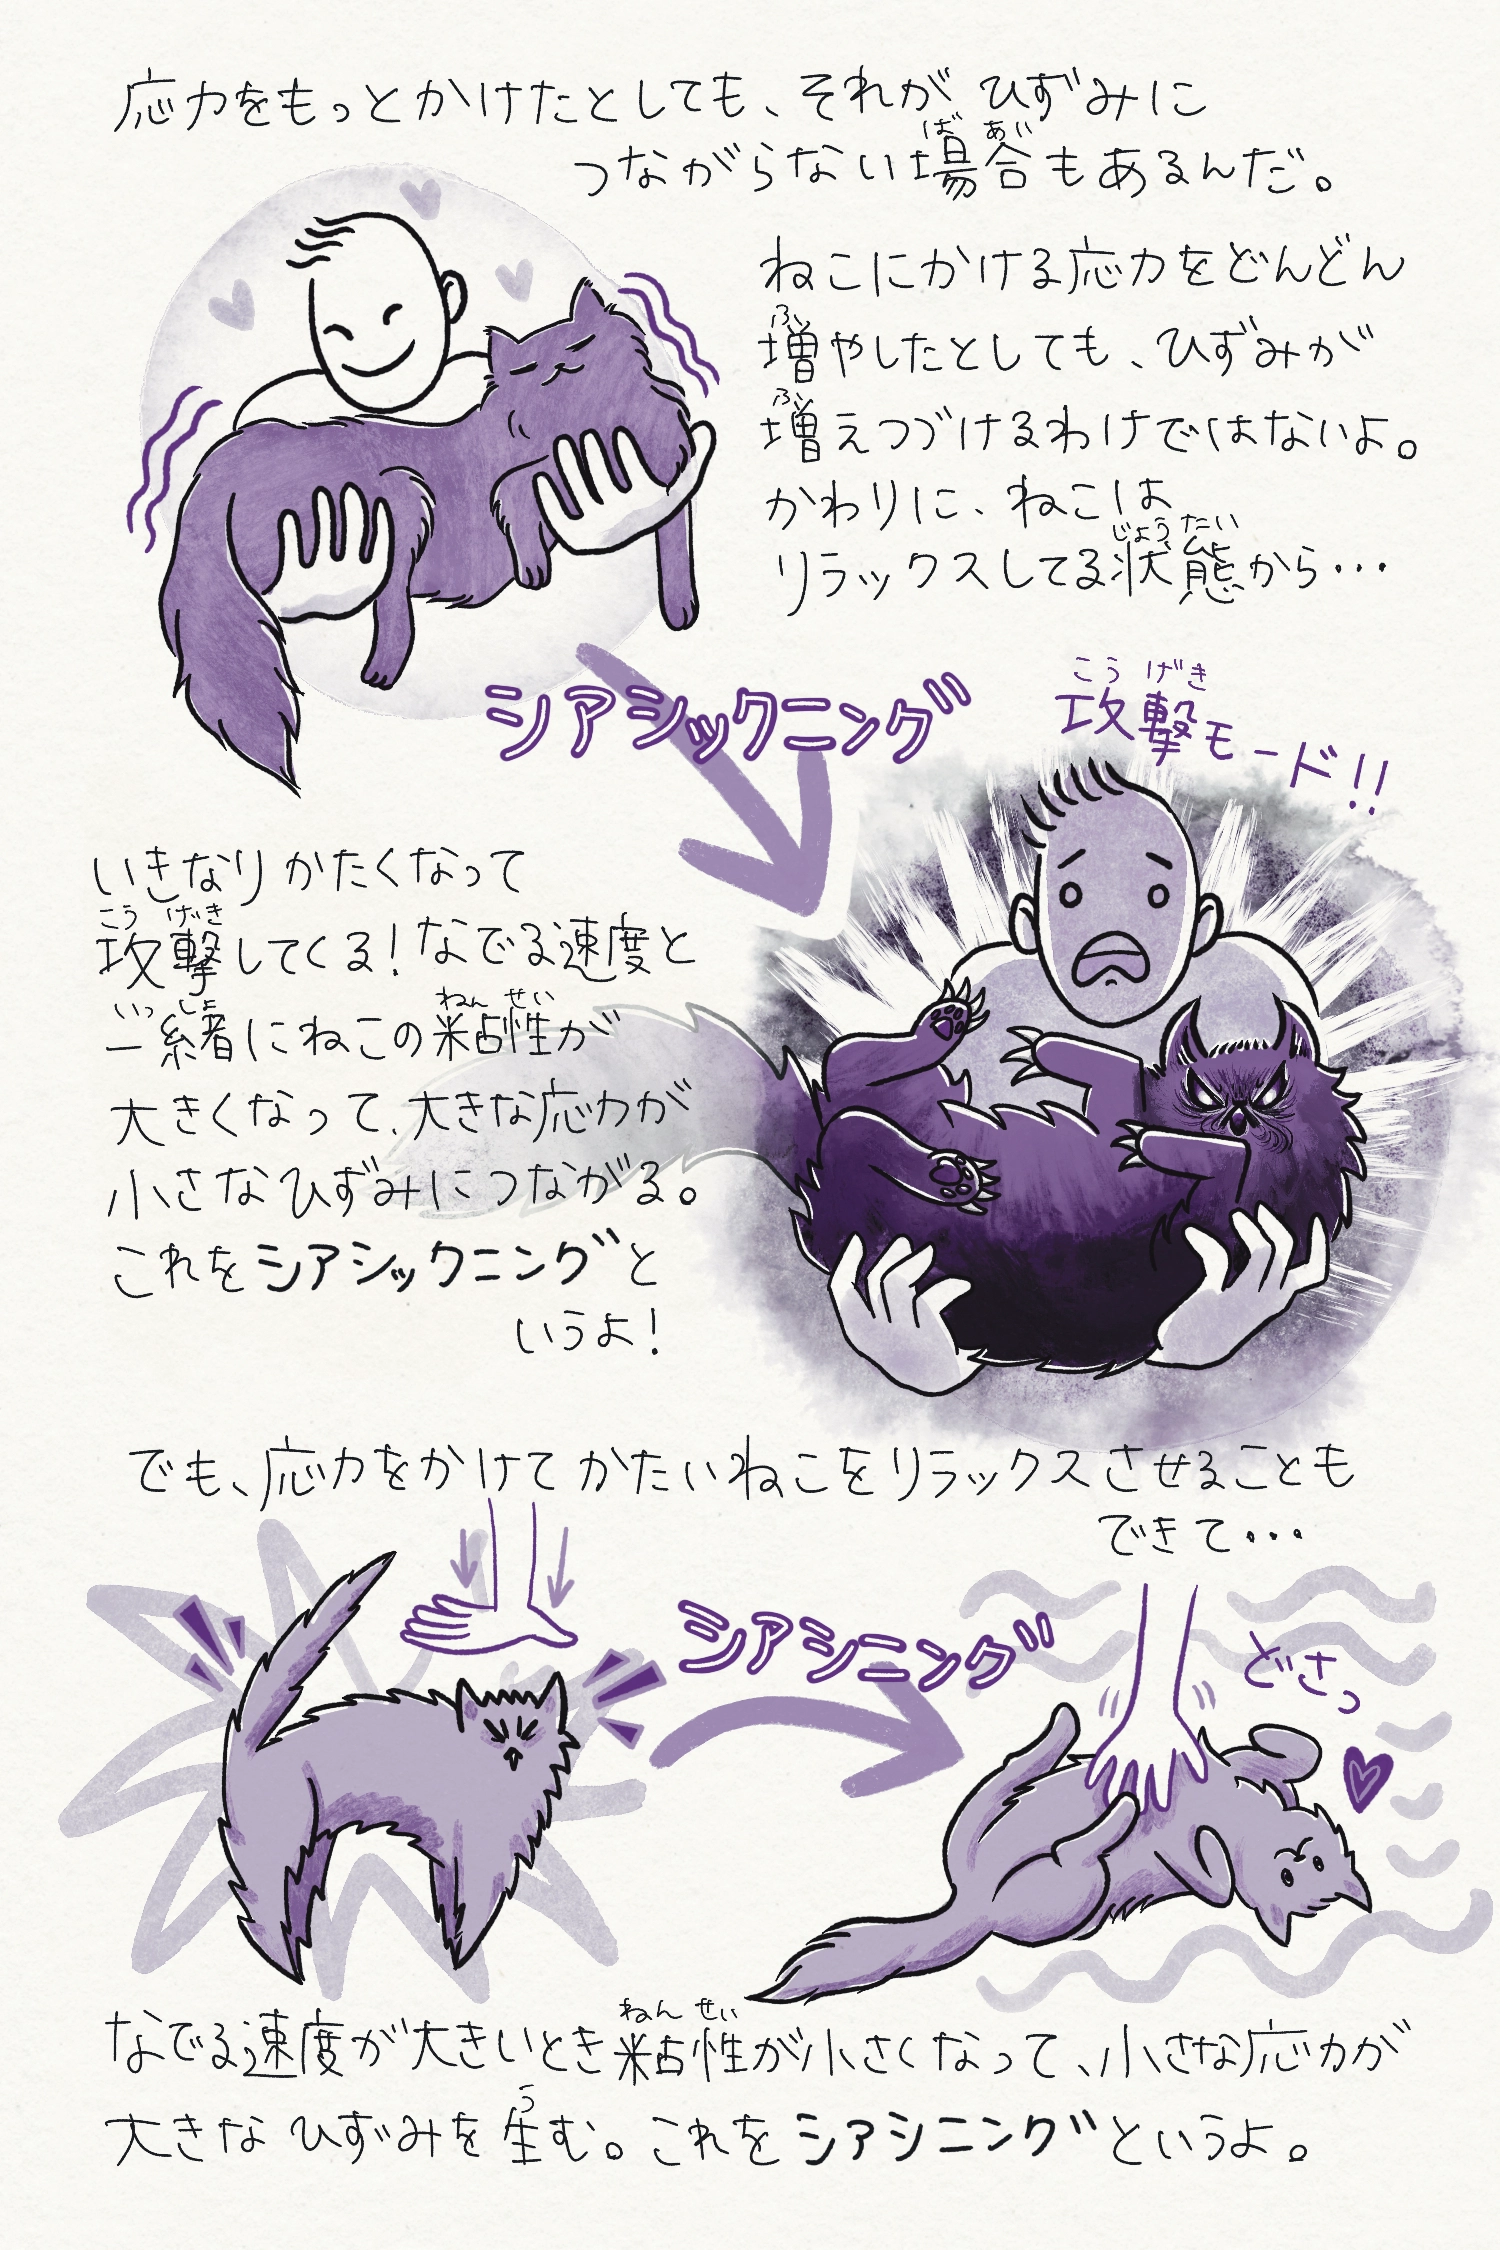 応力をもっとかけたとしても、それが ひずみに
つながらない場合もあるんだ。
ばあい
ねこにかける応力をどんどん
増やしたとしても、ひずみが
ふ
増えつづけるわけではないよ。
ふ
かわりに、ねこは
リラックスしてる状態から・・・
じょうたい
シアシックニング
攻撃モード!!
こうげき
いきなり かたくなって
攻撃してくる!なでる速度と
こうげき
一緒にねこの粘性が
いっしょ ねんせい
大きくなって、大きな応力が
小さなひずみにつながる。
これをシアシックニングと
いうよ!
でも、応力をかけて かたいねこをリラックスさせることも
できて・・・
シアシニング
どさっ
なでる速度が大きいとき粘性が小さくなって、小さな応力が
ねんせい
大きな ひずみを生む。これをシアシニングというよ。
う